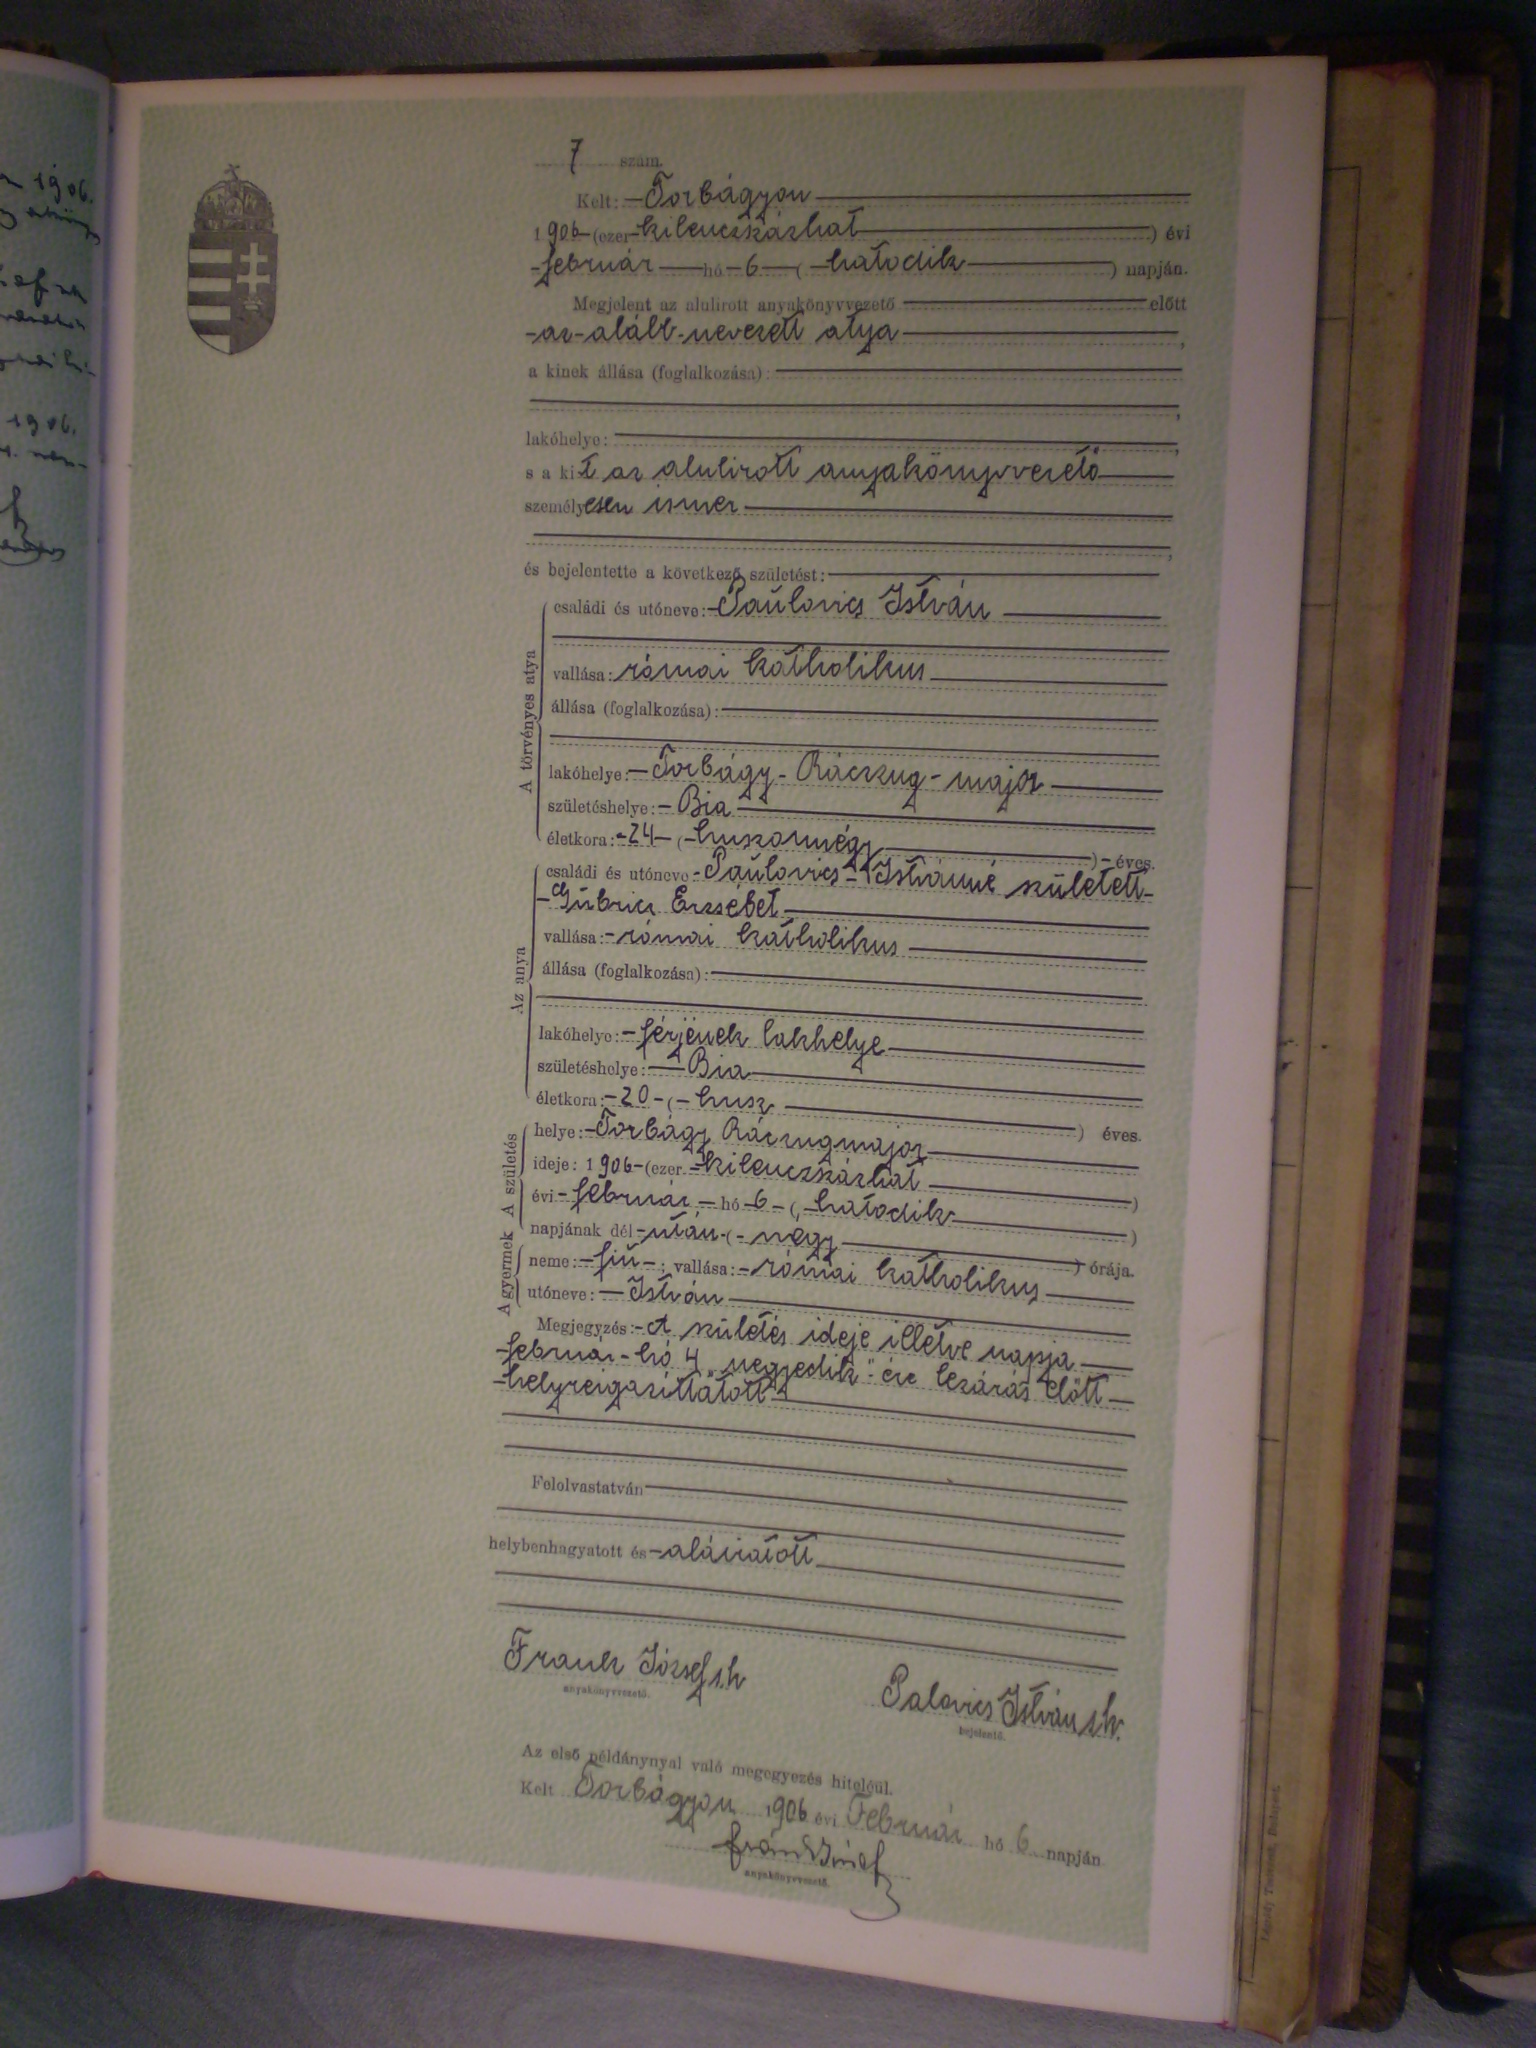 7 szám.
Kelt: Torbágyon
1906 (ezer kilenczszázhat) évi
február hó 6 (hatodik) napján.
Megjelent az alulirott anyakönyvvezető előtt
az alább nevezett atya,
a kinek állása (foglalkozása):
lakóhelye:
s a kit az alulirott anyakönyvvezető
személyesen ismer,
és bejelentette a következő születést:
A törvényes atya
családi és utóneve: Paulovics István
vallása: római katholikus
állása (foglalkozása):
lakóhelye: Torbágy - Ráczzug - major
születéshelye: Bia
életkora: 24 (huszonnégy) éves.
Az anya
családi és utóneve Paulovics Istvánné született
Gübricz Erzsébet
vallása: római katholikus
állása (foglalkozása):
lakóhelye: férjének lakhelye
születéshelye: Bia
életkora: 20 (husz) éves.
A születés
helye: Torbágy Ráczzugmajor
ideje: 1906 (ezer kilenczszázhat)
évi február hó 6 (hatodik)
napjának dél után (négy) órája.
A gyermek
neme: fiú; vallása: római katholikus
utóneve: István
Megjegyzés: A születés ideje illetve napja
február hó 4 „negyedik"-ére lezárás előtt
helyreigazíttatott
Felolvastatván
helybenhagyatott és aláiratott
Frank József s.k
anyakönyvvezető.
Palovics István s.k.
bejelentő.
Az első példánynyal való megegyezés hiteléül.
Kelt Torbágyon 1906 évi Február hó 6 napján
Frank József
anyakönyvvezető.
1906.
1906.